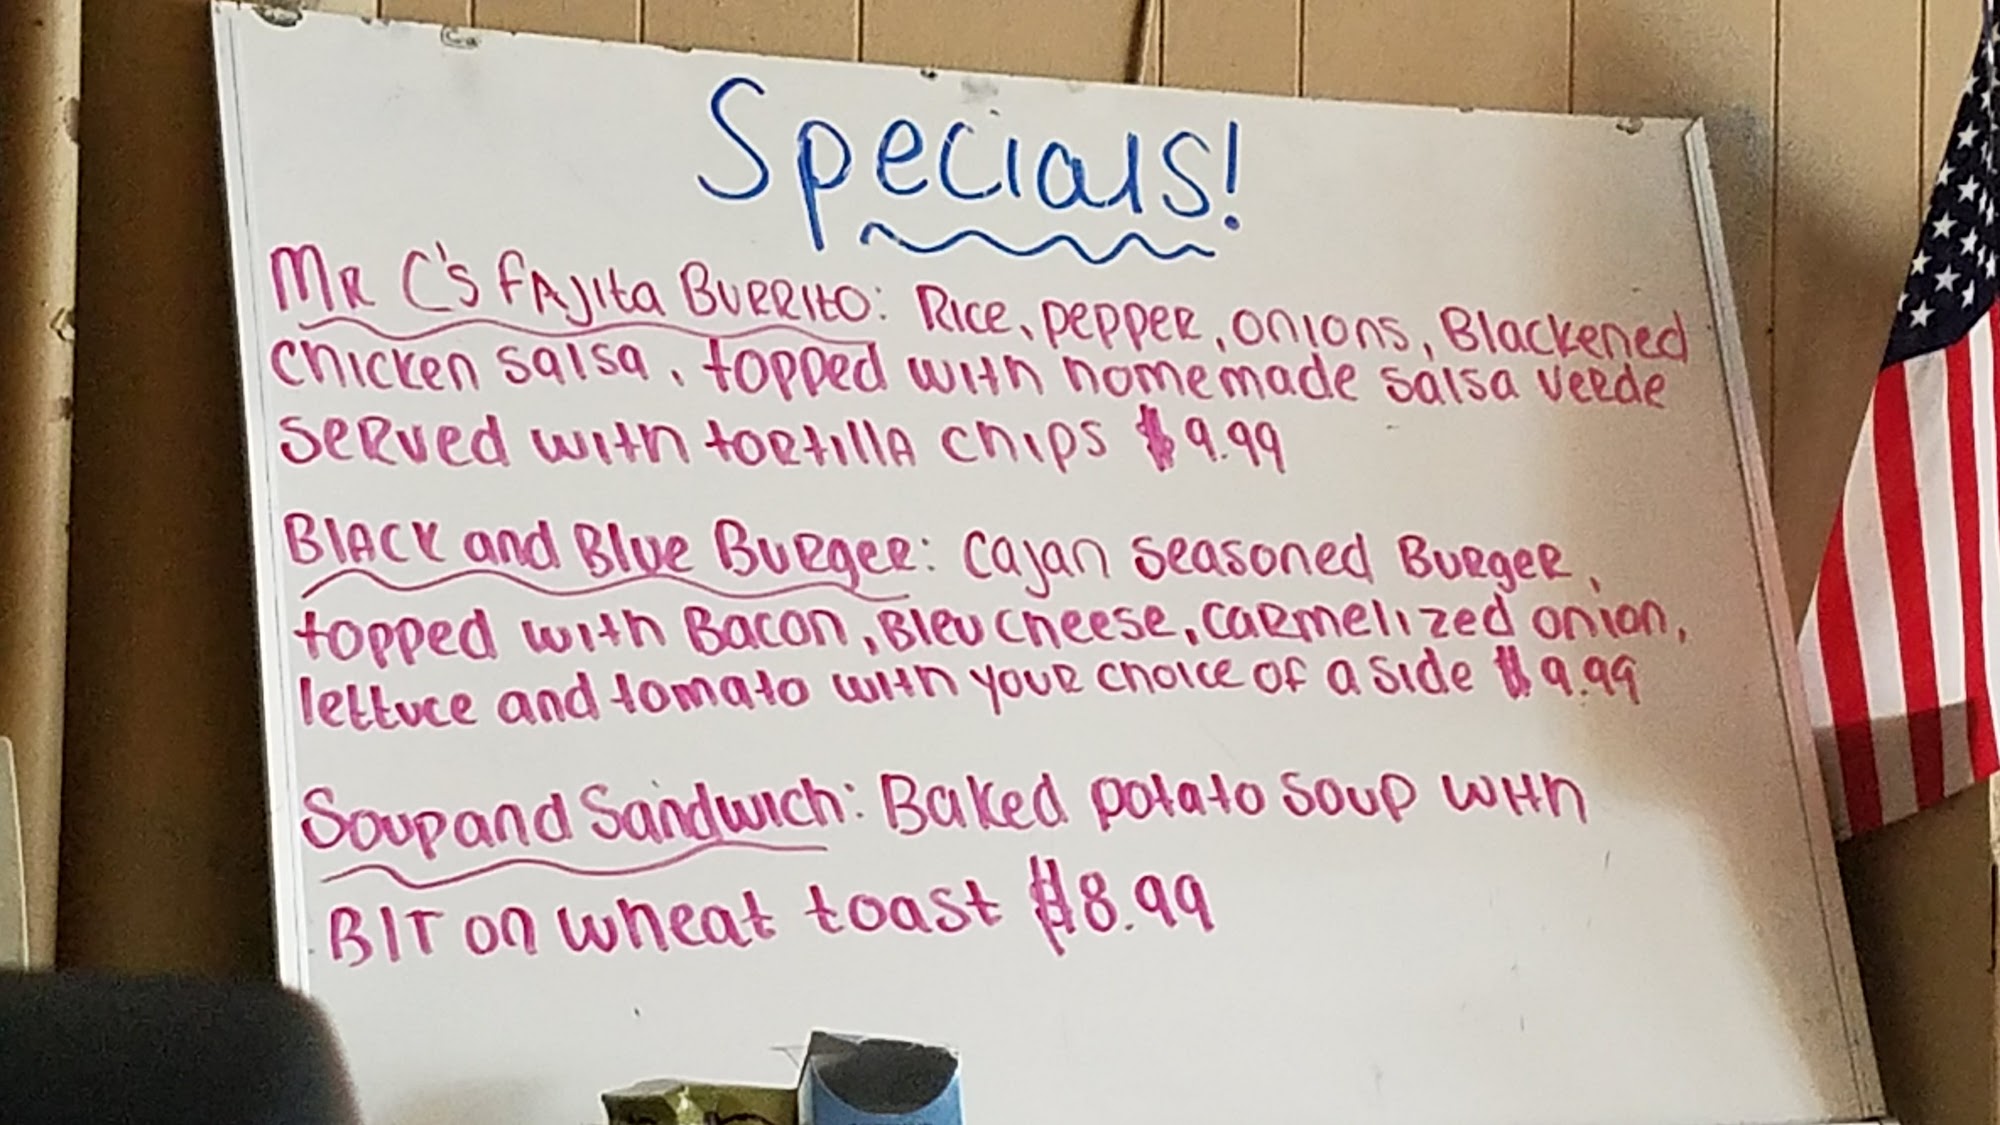 Specials!
MR C's FAJita BURRITO: Rice, pepper, onions, Blackened
chicken salsa, topped with homemade salsa verde
served with tortilla chips $9.99
Black and Blue Burger: Cajan seasoned Burger,
topped with Bacon, Bleu cheese, carmelized onion,
lettuce and tomato with your choice of a side $9.99
Soup and Sandwich: Baked potato soup with
BIT on wheat toast $8.99